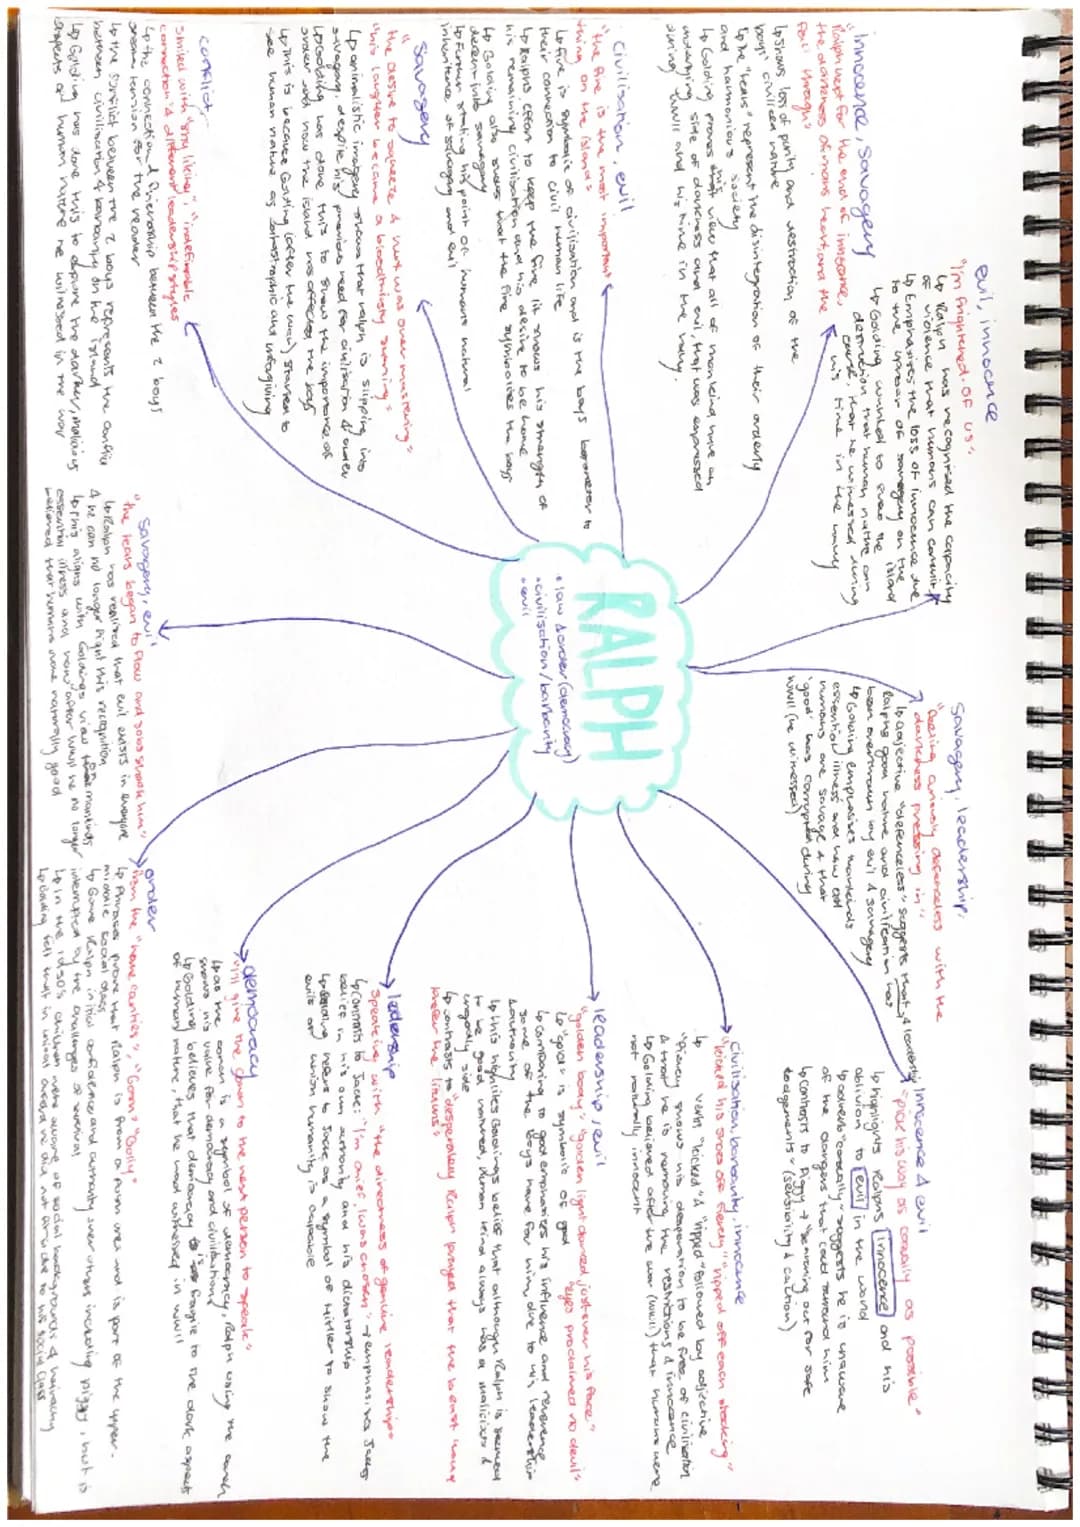 RALPH
• law & order (democracy)
• civilisation / barbarity
• evil
evil, innocence
"I'm frightened. Of us"
↳ Ralph has recognised the capacity
of violence that humans can commit
↳ Emphasises the loss of innocence due
to the uproar of savagery on the island
↳ Golding wished to the
destruction that human nature can
cause, that he witnessed during
his time in the navy
innocence, savagery
"Ralph wept for the end of innocence,
the darkness of man's heart and the
fall through"
↳ shows loss of purity and destruction of the
boys' civilised nature
↳ the "tears" represent the disintegration of their orderly
and harmonious society
↳ Golding proves his view that all of mankind have an
underlying state of darkness and evil, that was expressed
during WWII and his time in the navy.
civilisation, evil
"the fire is the most important
thing on the island"
↳ fire is symbolic of civilisation and is the boys barometer to
their connection to civil human life
↳ Ralphs effort to keep the fire lit shows his strength of
his remaining civilisation and his desire to be home
↳ Golding also shows that the fire symbolises the boys
descent into savagery
↳ Further stating his point of humans natural
inheritance of savagery and evil
Savagery
"the desire to squeeze & hurt was over mastering"
"his laughter became a bloodthirsty snarling"
↳ animalistic imagery shows that ralph is slipping into
savagery, despite his previous need for civilisation & order
↳ Golding has done this to show the importance of
order and how the island has affected the boys
↳ This is because Golding (after the war) started to
see human nature as catastrophic and unforgiving
conflict
smiled with "shy liking", "indefinable
connection" & different leadership styles
↳ the connection and friendship between the 2 boys
tension for the reader
↳ the conflict between the 2 boys represents the conflict
between civilisation & barbarity on the island
↳ Golding has done this to depict the darker, malicious
aspects of human nature he witnessed in the war
Savagery, evil
"the tears began to flow and sobs shook him"
↳ Ralph has realised that evil exists in everyone
& he can no longer fight this recognition
↳ This aligns with Goldings view on mankinds
essential illness and how after WWII he no longer
believed that humans were naturally good
Savagery, leadership
"feeling curiously defenceless with the
darkness pressing in"
↳ adjective "defenceless" suggests that
Ralphs good nature and civilisation has
been overthrown by evil & savagery
↳ Golding emphasises mankinds
essential illness and how all
humans are savage & that
'good' has corrupted during
WWII (he witnessed)
innocence & evil
"pick his way as casually as possible"
↳ highlights Ralphs innocence and his
oblivion to evil in the world
↳ adverb "casually" suggests he is unaware
of the dangers that could surround him
↳ contrasts to Piggy → "searching out for safe
lodgements" (sensibility & caution)
Civilisation, barbarity, innocence
"kicked his shoes off fiercely" "ripped off each stocking"
↳ verb "kicked" & "ripped" followed by adjective
"fiercely" shows his desperation to be free of civilisation
& that he is removing the restrictions & innocence
↳ Golding believed after the war (WWII) that humans were
not naturally innocent
leadership, evil
"golden body", "golden light danced just over his face"
"eyes proclaimed no devil"
↳ "gold" is symbolic of god
↳ Comparing to god emphasises his influence and reverence
some of the boys have for him, due to his leadership
& authority
↳ this highlites Goldings belief that although Ralph is deemed
to be good natured, human kind always has a malicious &
ungodly side
↳ contrasts to "desperately Ralph prayed that the beast would
prefer the littluns"
leadership
speaking with "the directness of genuine leadership"
↳ Contrasts to Jack: "I'm chief, I was chosen" → emphasises Jacks
belief in his own authority and his dictatorship
↳ Golding refers to Jack as a symbol of Hitler to show the
evils of which humanity is capable
democracy
"I'll give the conch to the next person to speak"
↳ as the conch is a symbol of democracy, Ralph using the conch
shows his value for democracy and civilisation
↳ Golding believes that democracy is fragile to the dark aspects
of human nature, that he had witnessed in WWII
order
from the "home counties", "Gosh", "Golly"
↳ Phrases prove that Ralph is from a and is part of the upper-
middle social class
↳ Gives Ralph initial confidence and authority over others including piggy, but is
interrupted by the challenges of survival
↳ In the 1950's children were aware of social backgrounds & heirarchy
↳ Golding felt that in he did not to his social class